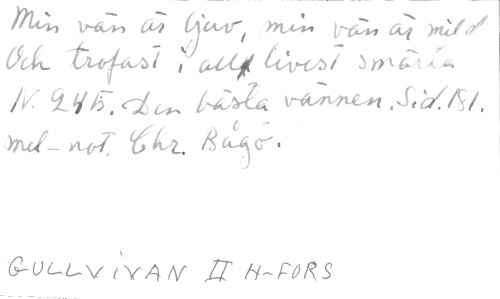 Min vän är ljuv, min vän är mild
Och trofast i all livest smärta
N. 245. Den bästa vännen. Sid. 181.
mel-not. Chr. Bågö.
GULLVIVAN II H-FORS